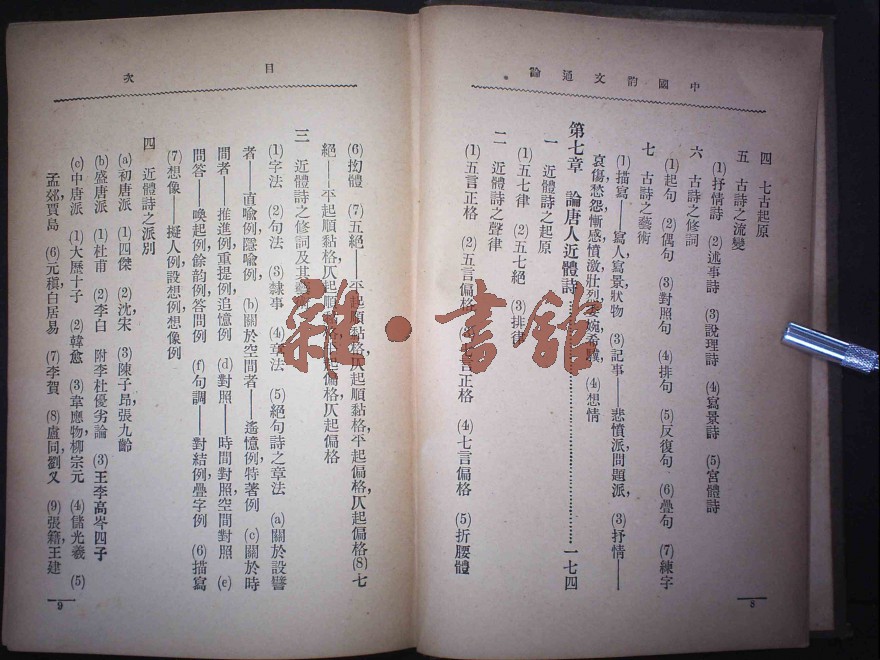 中國韵文通論
四　七古起原
五　古詩之流變
(1)抒情詩　(2)述事詩　(3)說理詩　(4)寫景詩　(5)宮體詩
六　古詩之修詞
(1)起句　(2)偶句　(3)對照句　(4)排句　(5)反復句　(6)疊句　(7)練字
七　古詩之藝術
(1)描寫——寫人,寫景,狀物　(3)記事——悲憤派,問題派,　(3)抒情——
哀傷,愁怨,慚感,憤激,壯烈,　(4)想情
第七章　論唐人近體詩……一七四
一　近體詩之起原
(1)五七律　(2)五七絕　(3)排律
二　近體詩之聲律
(1)五言正格　(2)五言偏格　言正格　(4)七言偏格　(5)折腰體
8
目次
(6)拗體　(7)五絕——平起順黏格,仄起順黏格,平起偏格,仄起偏格(8)七
絕——平起順黏格,仄起順黏格,平起偏格,仄起偏格
三　近體詩之修詞及其藝術
(1)字法　(2)句法　(3)隸事　(4)章法　(5)絕句詩之章法　(a)關於設譬
者——直喩例,隱喩例,　(b)關於空間者——遙憶例,特著例　(c)關於時
間者——推進例,重提例,追憶例　(d)對照——時間對照,空間對照　(e)
問答——喚起例,餘韵例,答問例　(f)句調——對結例,疊字例　(6)描寫
(7)想像——擬人例,設想例,想像例
四　近體詩之派別
(a)初唐派　(1)四傑　(2)沈宋　(3)陳子昂,張九齡
(b)盛唐派　(1)杜甫　(2)李白　附李杜優劣論　(3)王李高岑四子
(c)中唐派　(1)大歷十子　(2)韓愈　(3)韋應物,柳宗元　(4)儲光羲　(5)
孟郊,賈島　(6)元稹,白居易　(7)李賀　(8)盧同,劉叉　(9)張籍,王建
9
雜·書舘